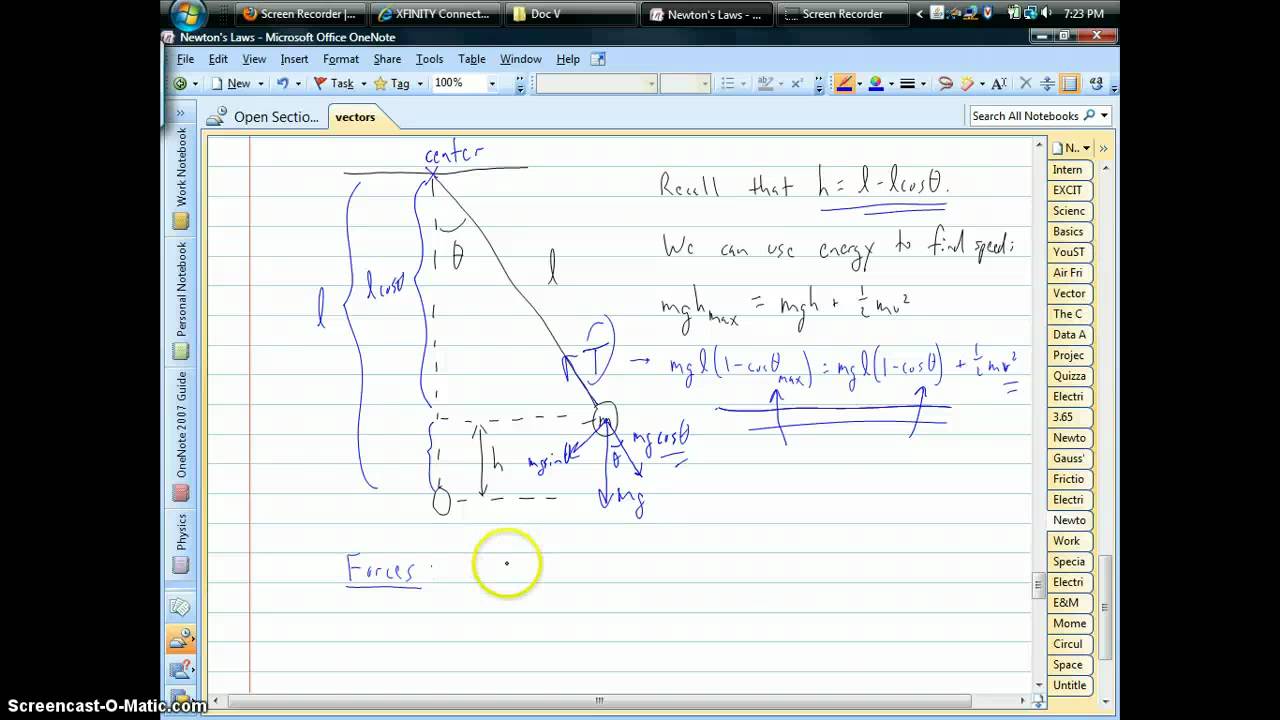 Screen Recorder |...
XFINITY Connect...
Doc V
Newton's Laws - ...
Screen Recorder
7:23 PM
Newton's Laws - Microsoft Office OneNote
File Edit View Insert Format Share Tools Table Window Help
New
Task
Tag
100%
Open Sectio...
vectors
Search All Notebooks
Work Notebook
Personal Notebook
OneNote 2007 Guide
Physics
center
θ
l
l cosθ
l
T
m
mg cosθ
mg sinθ
θ
mg
h
Recall that h = l - l cosθ.
We can use energy to find speed:
mgh max = mgh + 1/2 mv²
→ mgl(1-cosθ max) = mgl(1-cosθ) + 1/2 mv²
Forces:
N..
Intern
EXCIT
Scienc
Basics
YouST
Air Fri
Vector
The C
Data A
Projec
Quizza
Electri
3.65
Newto
Gauss'
Frictio
Electri
Newto
Work
Specia
Electri
E&M
Mome
Circul
Space
Untitle
Screencast-O-Matic.com